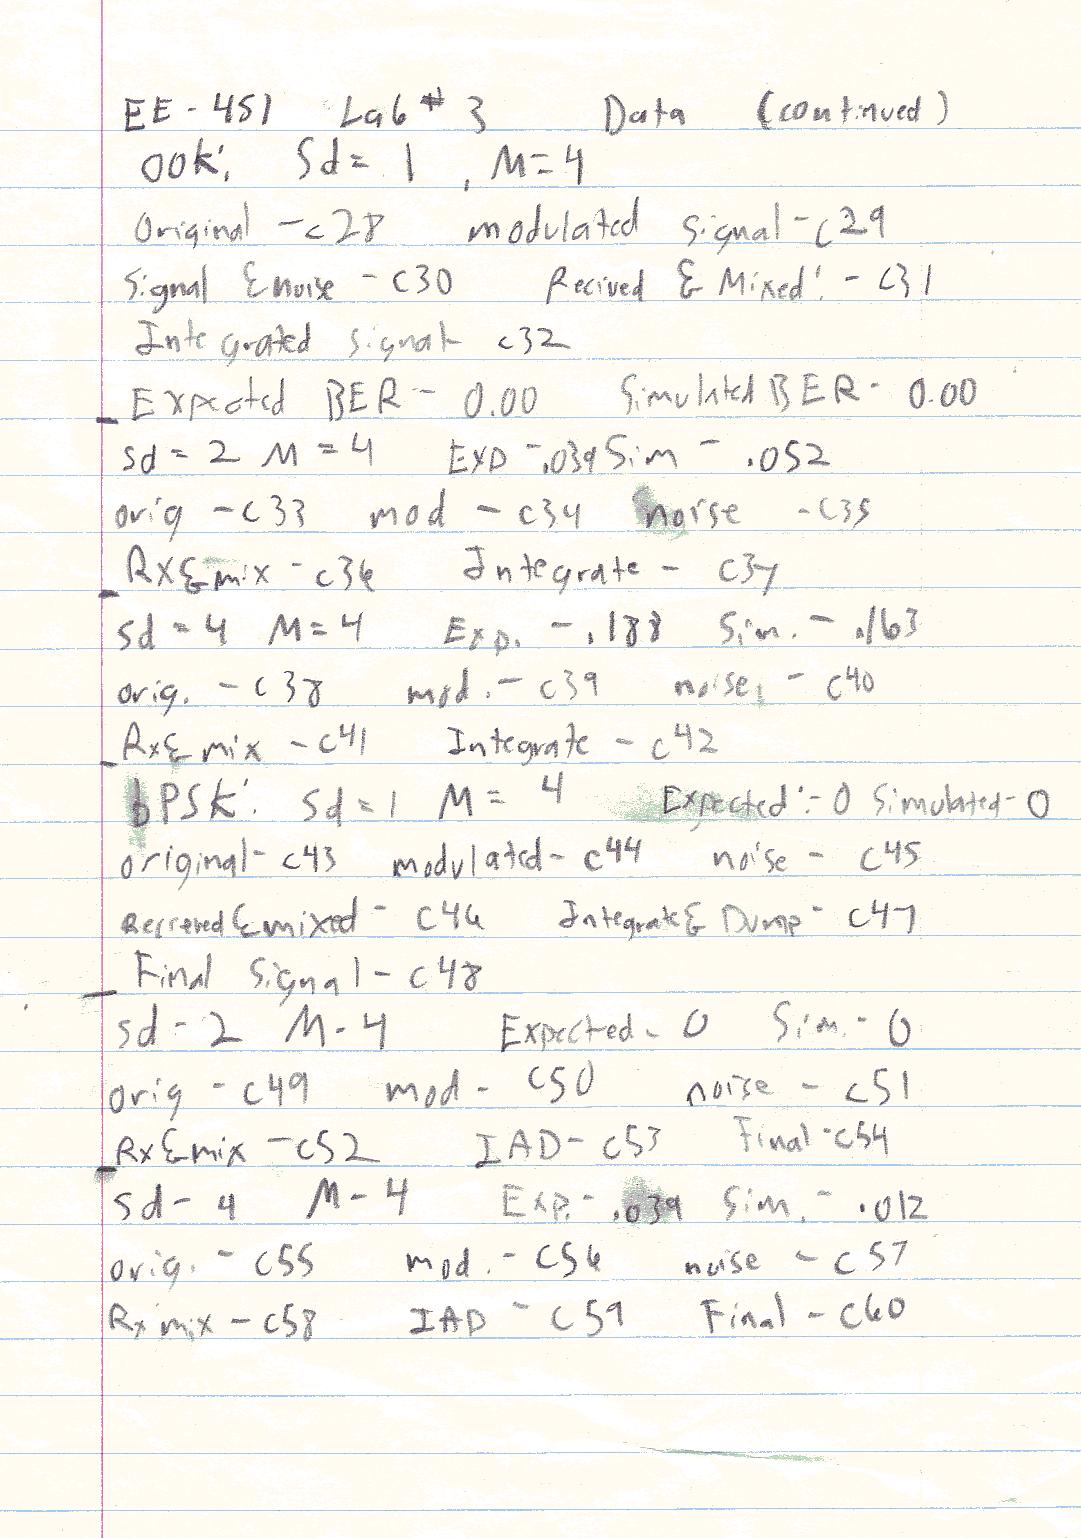 EE-451 Lab #3 Data (continued)
OOK: Sd= 1, M=4
Original - c28 modulated signal - c29
Signal & noise - c30 Recived & Mixed: - c31
Integrated signal - c32
Expected BER - 0.00 Simulated BER - 0.00
sd = 2 M = 4 Exp - .039 Sim - .052
orig - c33 mod - c34 noise - c35
Rx & mix - c36 Integrate - c37
sd = 4 M=4 Exp. - .188 Sim. - .163
orig. - c38 mod. - c39 noise, - c40
Rx & mix - c41 Integrate - c42
bPSK: Sd = 1 M = 4 Expected: - 0 Simulated - 0
original - c43 modulated - c44 noise - c45
& mixed - c46 Integrate & Dump - c47
Final Signal - c48
sd - 2 M - 4 Expected - 0 Sim. - 0
orig - c49 mod - c50 noise - c51
Rx & mix - c52 IAD - c53 Final - c54
sd - 4 M - 4 Exp. - .039 Sim. - .012
orig. - c55 mod. - c56 noise - c57
Rx mix - c58 IAD - c59 Final - c60